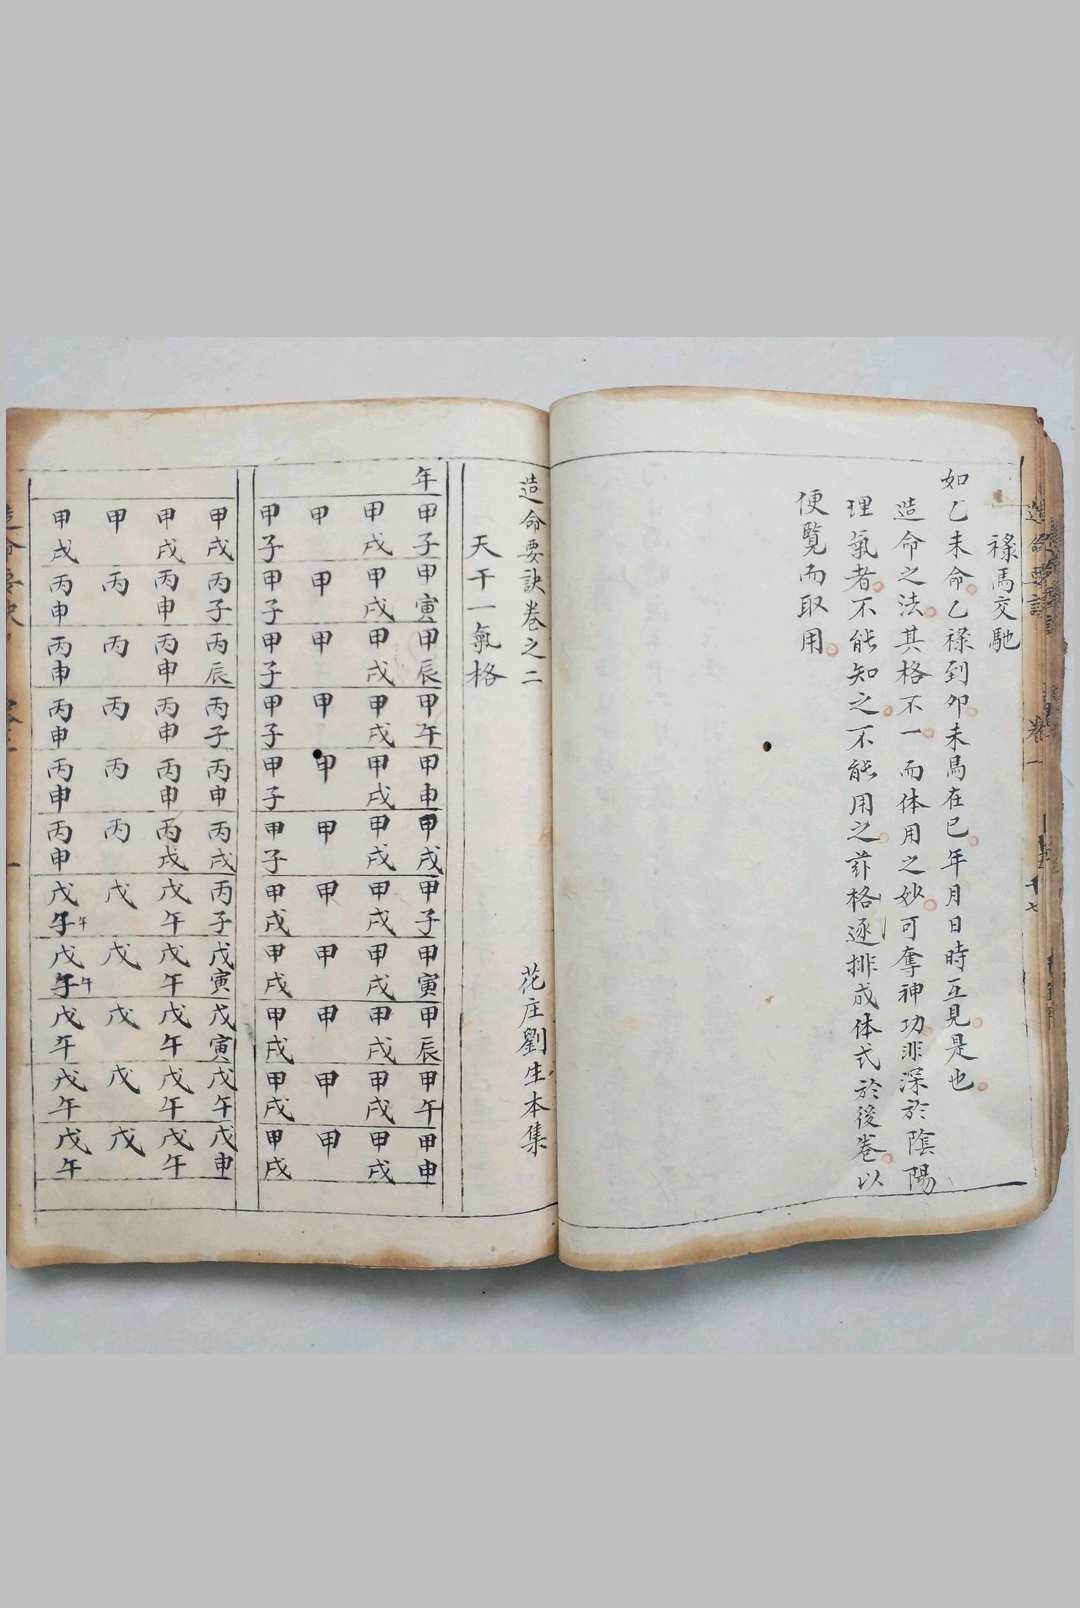 造命要訣 卷一 十七
禄馬交馳
如乙未命乙禄到卯未馬在巳年月日時互見是也
造命之法其格不一而体用之妙可奪神功非深於陰陽
理氣者不能知之不能用之茲格逐排成体式於後卷以
便覽而取用
造命要訣卷之二 花庄劉生本集
天干一氣格
年 甲子 甲寅 甲辰 甲午 甲申 甲戌 甲子 甲寅 甲辰 甲午 甲申
甲戌 甲戌 甲戌 甲戌 甲戌 甲戌 甲戌 甲戌 甲戌 甲戌 甲戌
甲 甲 甲 甲 甲 甲 甲 甲 甲 甲 甲
甲子 甲子 甲子 甲子 甲子 甲子 甲戌 甲戌 甲戌 甲戌 甲戌
甲戌 丙子 丙辰 丙子 丙申 丙戌 丙子 戊寅 戊寅 戊午 戊申
甲戌 丙申 丙申 丙申 丙申 丙戌 戊午 戊午 戊午 戊午 戊午
甲 丙 丙 丙 丙 丙 戊 戊 戊 戊 戊
甲戌 丙申 丙申 丙申 丙申 丙申 戊子午 戊子午 戊午 戊午 戊午